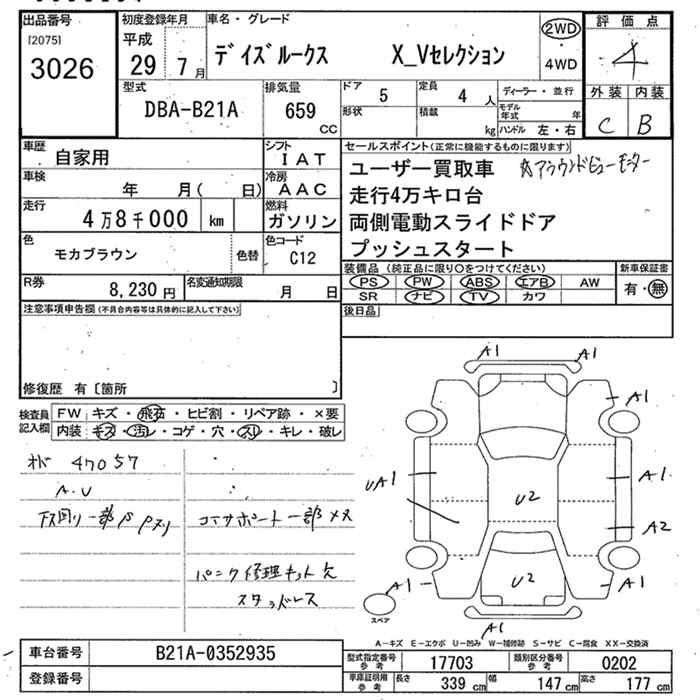 出品番号
[2075]
3026
初度登録年月
平成
29年7月
車名・グレード
デイズルークス X_Vセレクション
2WD
・
4WD
評価点
4
外装 内装
C B
型式
DBA-B21A
排気量
659
CC
ドア
5
形状
定員
4人
積載
kg
ディーラー・並行
モデル年式 年
ハンドル 左・右
車歴
自家用
シフト
IAT
車検
年 月( 日)
冷房
AAC
走行
4万8千000 km
燃料
ガソリン
色
モカブラウン
色替
色コード
C12
R券
8,230円
名変通知期限
月 日
セールスポイント(正常に機能するものに限ります)
ユーザー買取車
アラウンドビューモニター
走行4万キロ台
両側電動スライドドア
プッシュスタート
装備品(純正品に限り○をつけてください)
PS PW ABS エアB AW
SR ナビ TV カワ
新車保証書
有・無
後日品
注意事項申告欄(不具合内容等は具体的に記入して下さい)
修復歴 有〔箇所 〕
検査員
記入欄
FW キズ・飛石・ヒビ割・リペア跡・×要
内装 キズ・汚レ・コゲ・穴・スリ・キレ・破レ
47057
A.V
下回り一部
コーナーサポート一部
パンク修理キット欠
スタッドレス
A1 A1
A1
UA1
A1
U2
A2
A1
U2
A1
A1
スペア
A-キズ E-エクボ U-凹み W-補修跡 S-サビ C-腐食 XX-交換済
車台番号
B21A-0352935
登録番号
型式指定番号
参考
17703
類別区分番号
参考
0202
車庫証明用
参考
長さ
339 cm
幅
147 cm
高さ
177 cm